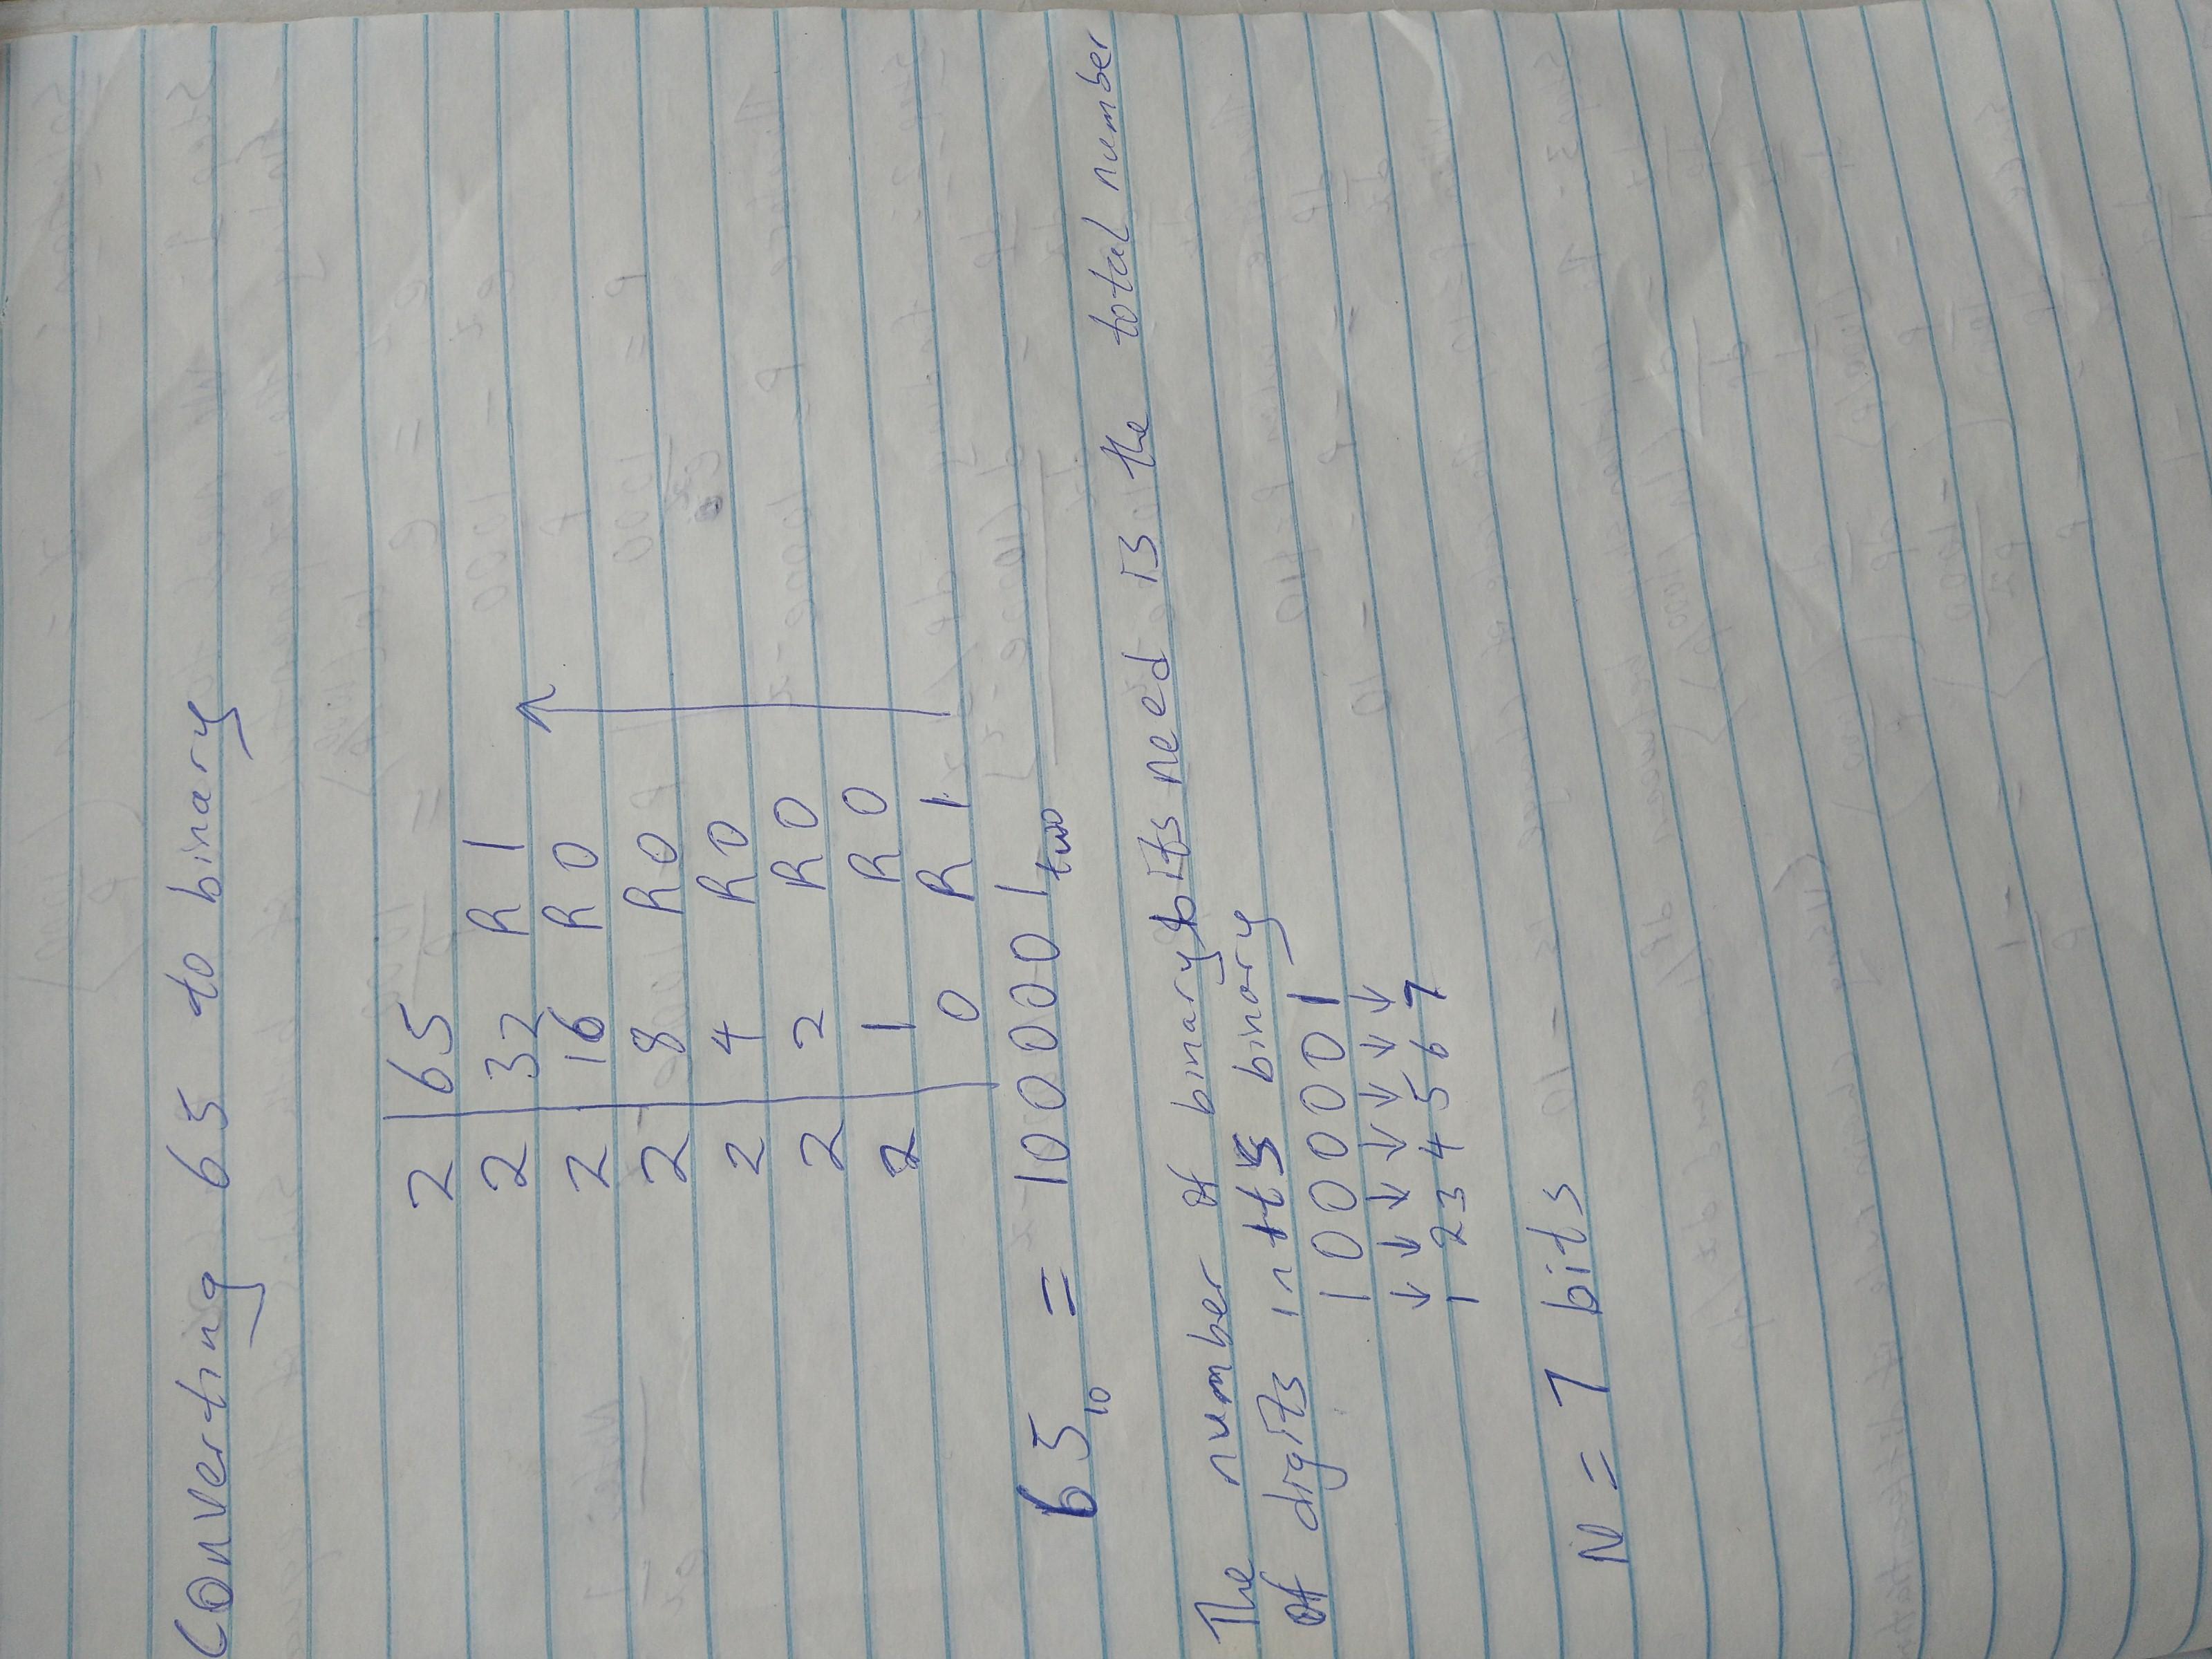 Converting 65 to binary
2 | 65
2 | 32 R 1
2 | 16 R 0
2 | 8 R 0
2 | 4 R 0
2 | 2 R 0
2 | 1 R 0
0 R 1
65₁₀ = 1000001two
The number of binary bits need is the total number
of digits in its binary
1 0 0 0 0 0 1
↓ ↓ ↓ ↓ ↓ ↓ ↓
1 2 3 4 5 6 7
N = 7 bits